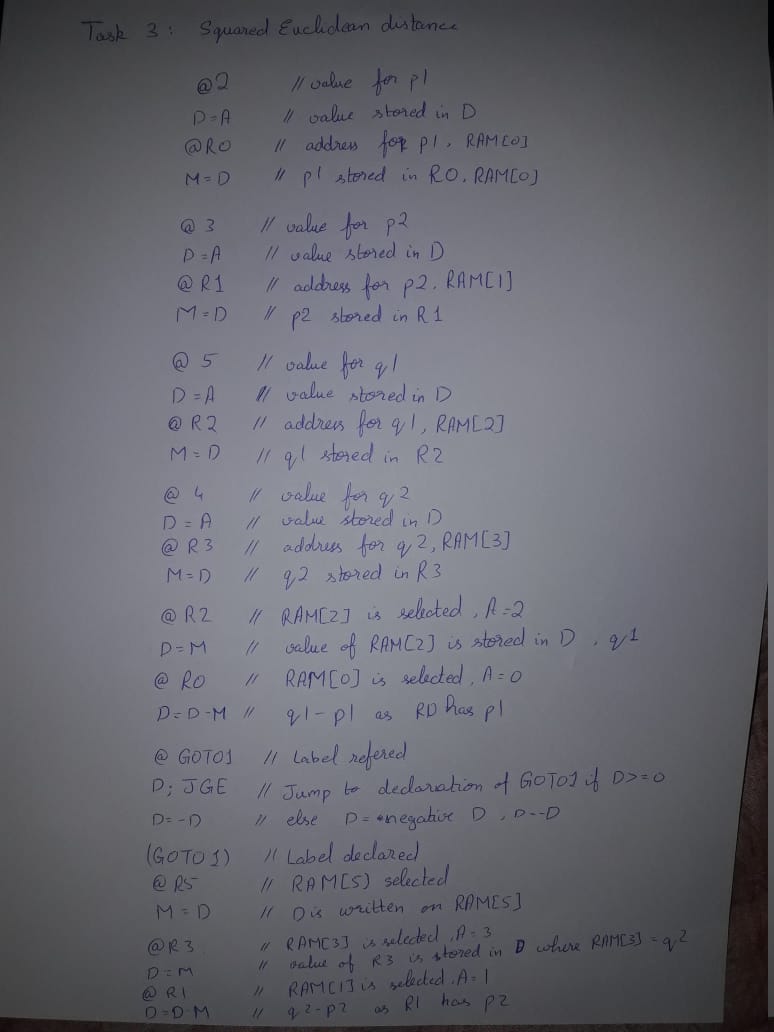 Task 3: Squared Euclidean distance
@2 // value for p1
D=A // value stored in D
@R0 // address for p1, RAM[0]
M=D // p1 stored in R0, RAM[0]
@3 // value for p2
D=A // value stored in D
@R1 // address for p2, RAM[1]
M=D // p2 stored in R1
@5 // value for q1
D=A // value stored in D
@R2 // address for q1, RAM[2]
M=D // q1 stored in R2
@4 // value for q2
D=A // value stored in D
@R3 // address for q2, RAM[3]
M=D // q2 stored in R3
@R2 // RAM[2] is selected, A=2
D=M // value of RAM[2] is stored in D, q1
@R0 // RAM[0] is selected, A=0
D=D-M // q1-p1 as R0 has p1
@GOTO1 // Label refered
D; JGE // Jump to declaration of GOTO1 if D>=0
D=-D // else D= negative D, D=-D
(GOTO1) // Label declared
@R5 // RAM[5] selected
M=D // D is written on RAM[5]
@R3 // RAM[3] is selected, A=3
D=M // value of R3 is stored in D where RAM[3]=q2
@R1 // RAM[1] is selected, A=1
D=D-M // q2-p2 as R1 has p2